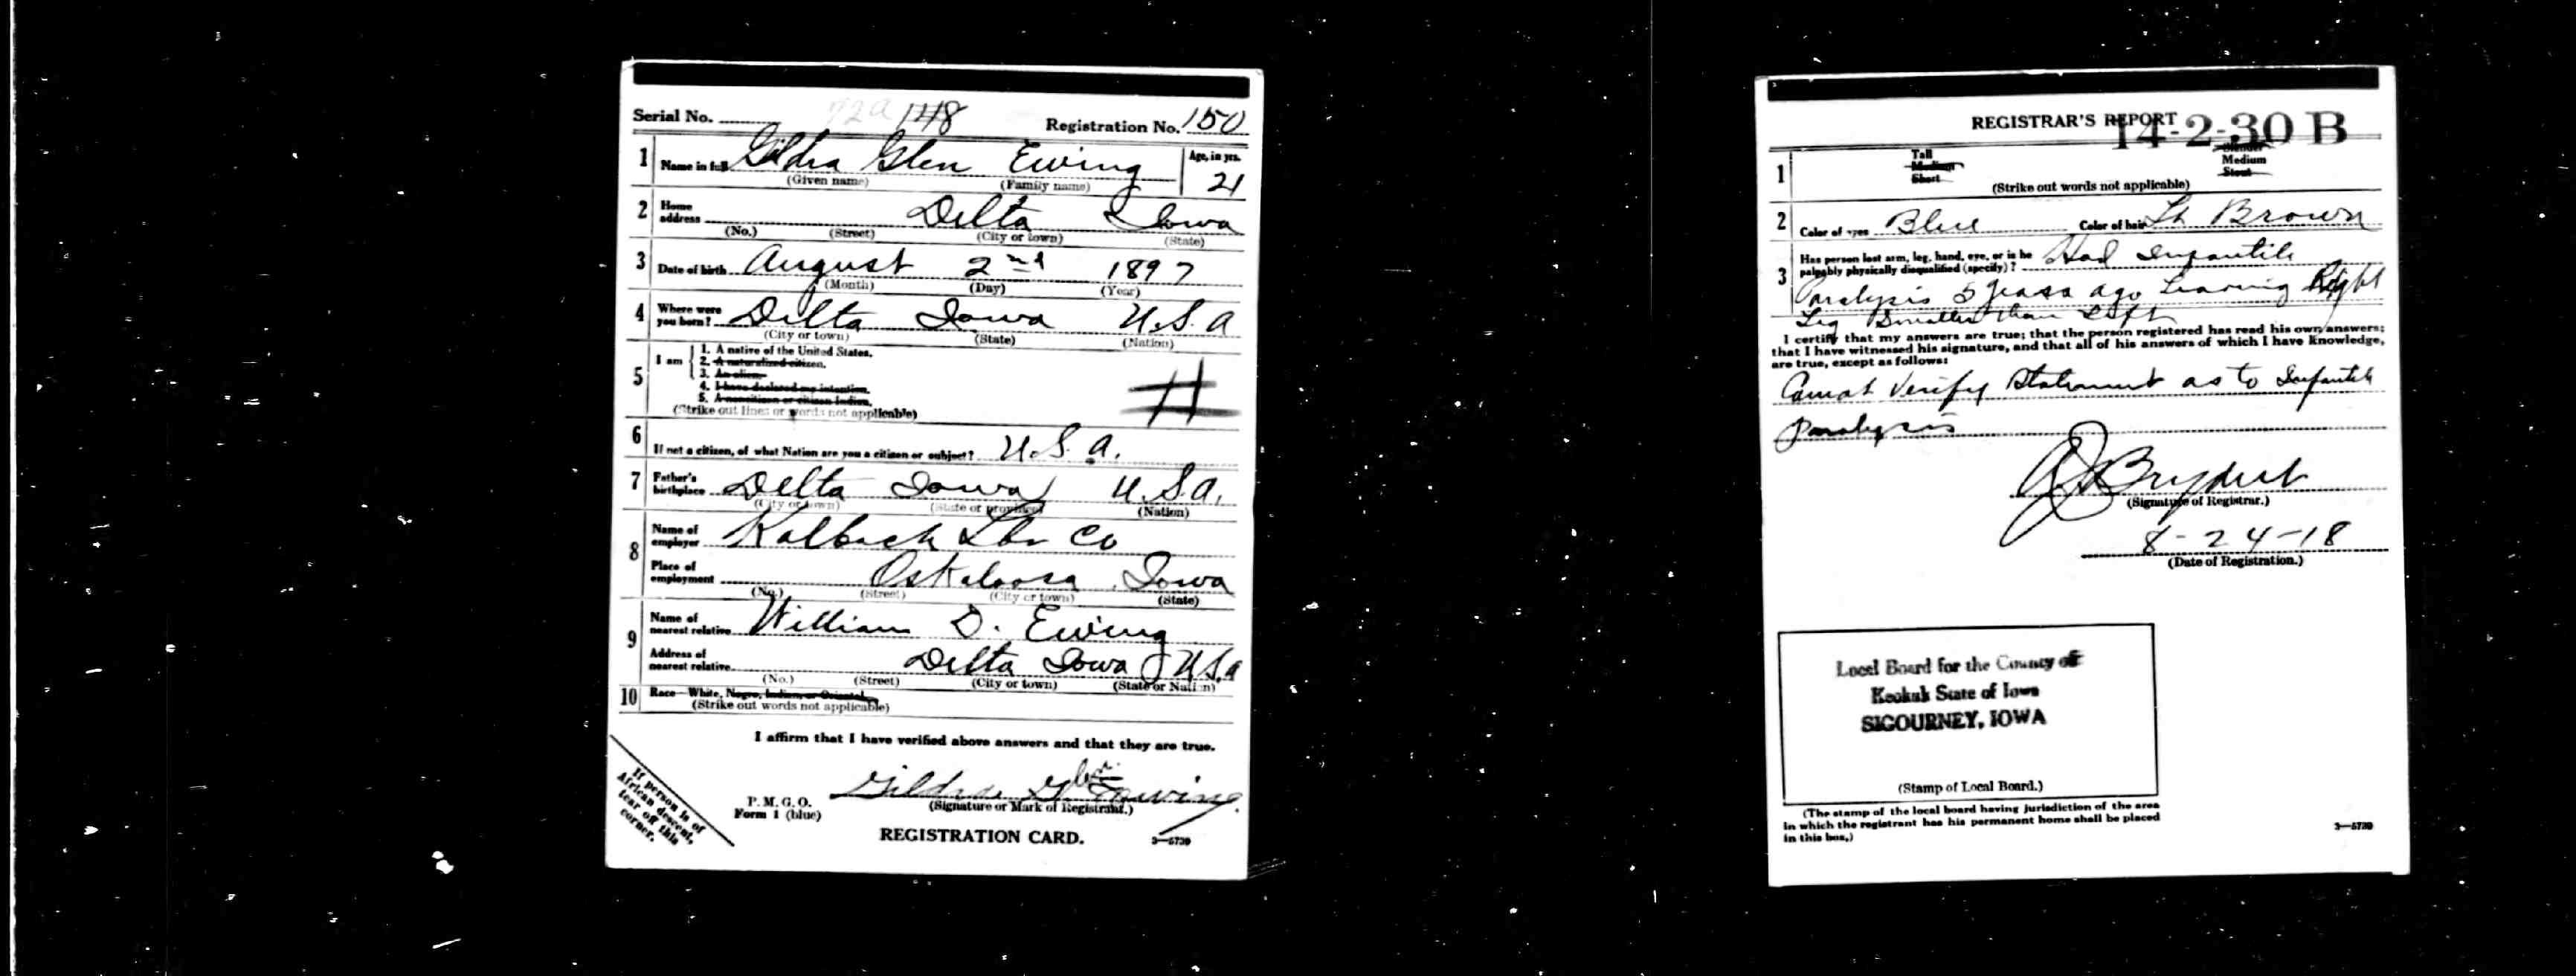 Serial No. 148 Registration No. 150
1 Name in full Gildra Glen Ewing Age, in yrs. 21
(Given name) (Family name)
2 Home address Delta Iowa
(No.) (Street) (City or town) (State)
3 Date of birth August 2nd 1897
(Month) (Day) (Year)
4 Where were you born? Delta Iowa U.S.A
(City or town) (State) (Nation)
5 I am
1. A native of the United States.
2. A naturalized citizen.
3. An alien.
4. I have declared my intention.
5. A noncitizen or citizen Indian.
(Strike out lines or words not applicable)
6 If not a citizen, of what Nation are you a citizen or subject? U.S.A.
7 Father's birthplace Delta Iowa U.S.A.
(City or town) (State or province) (Nation)
8 Name of employer Kalbach Lbr Co
Place of employment Oskaloosa Iowa
(No.) (Street) (City or town) (State)
9 Name of nearest relative William D. Ewing
Address of nearest relative Delta Iowa U.S.A
(No.) (Street) (City or town) (State or Nation)
10 Race—White, Negro, Indian, or Oriental
(Strike out words not applicable)
I affirm that I have verified above answers and that they are true.
Gildra Glen Ewing
(Signature or Mark of Registrant.)
P. M. G. O.
Form 1 (blue)
REGISTRATION CARD.
3—5739
If person is of
African descent,
tear off this
corner.
REGISTRAR'S REPORT
14-2-30 B
1 Tall Slender
Medium Medium
Short Stout
(Strike out words not applicable)
2 Color of eyes Blue Color of hair Lt Brown
3 Has person lost arm, leg, hand, eye, or is he
palpably physically disqualified (specify)? Had Infantile
Paralysis 5 years ago Leaving Right
Leg Smaller than Left
I certify that my answers are true; that the person registered has read his own answers;
that I have witnessed his signature, and that all of his answers of which I have knowledge,
are true, except as follows:
Cannot Verify Statement as to Infantile
Paralysis
(Signature of Registrar.)
8-24-18
(Date of Registration.)
Local Board for the County of
Keokuk State of Iowa
SIGOURNEY, IOWA
(Stamp of Local Board.)
(The stamp of the local board having jurisdiction of the area
in which the registrant has his permanent home shall be placed
in this box.)
3—5739